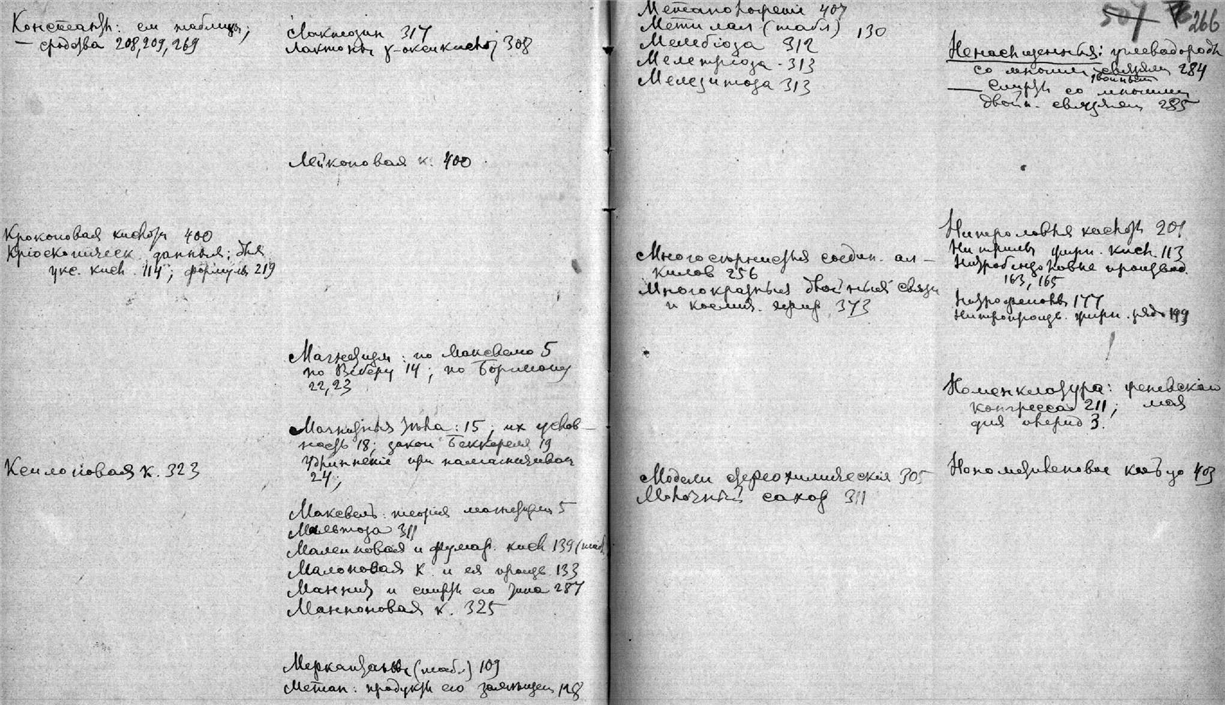 Константы: см таблицы;
— сродства 208, 209, 269
Кроконовая кислота 400
Кріоскопическ. данныя: для
укс. кисл. 114; формула 219
Ксилоновая к. 323
Лактозин 317
Лактоны γ-оксикислот 308
Лейконовая к. 400
Магнетизм: по Максвелю 5
по Веберу 14; по Боргману
22, 23
Магнитныя тѣла: 15; их
18; закон Беккереля 19
Удлиннение при намагничиван
24;
Максвель: теория магнетизма 5
Мальтоза 311
Малеиновая и фумар. кисл 139 (табл)
Малоновая К. и ея произв. 133
Маннит и спирты его типа 287
Манноновая к. 325
Меркаптаны (табл) 109
Метан: продукты его замещен 128
407
Метилал (табл) 130
Мелебіоза 312
Мелетріоза 313
Мелезитоза 313
Многосернистыя соедин. ал-
килов 256
Многократныя двойныя связи
373
Модели стереохимическія 305
Молочный сахар 311
507 266
Ненасыщенныя: углеводороды
со многими двойными связями 284
— Спирты со многими
двойн. связями 285
Нитроловыя кислоты 201
Нитрилы жирн. кисл. 113
производ.
163, 165
177
Нитропроизв. жирн. ряда 199
Номенклатура: Женевскаго
конгресса 211; моя
для 3.
Нонометиленовое кольцо 403